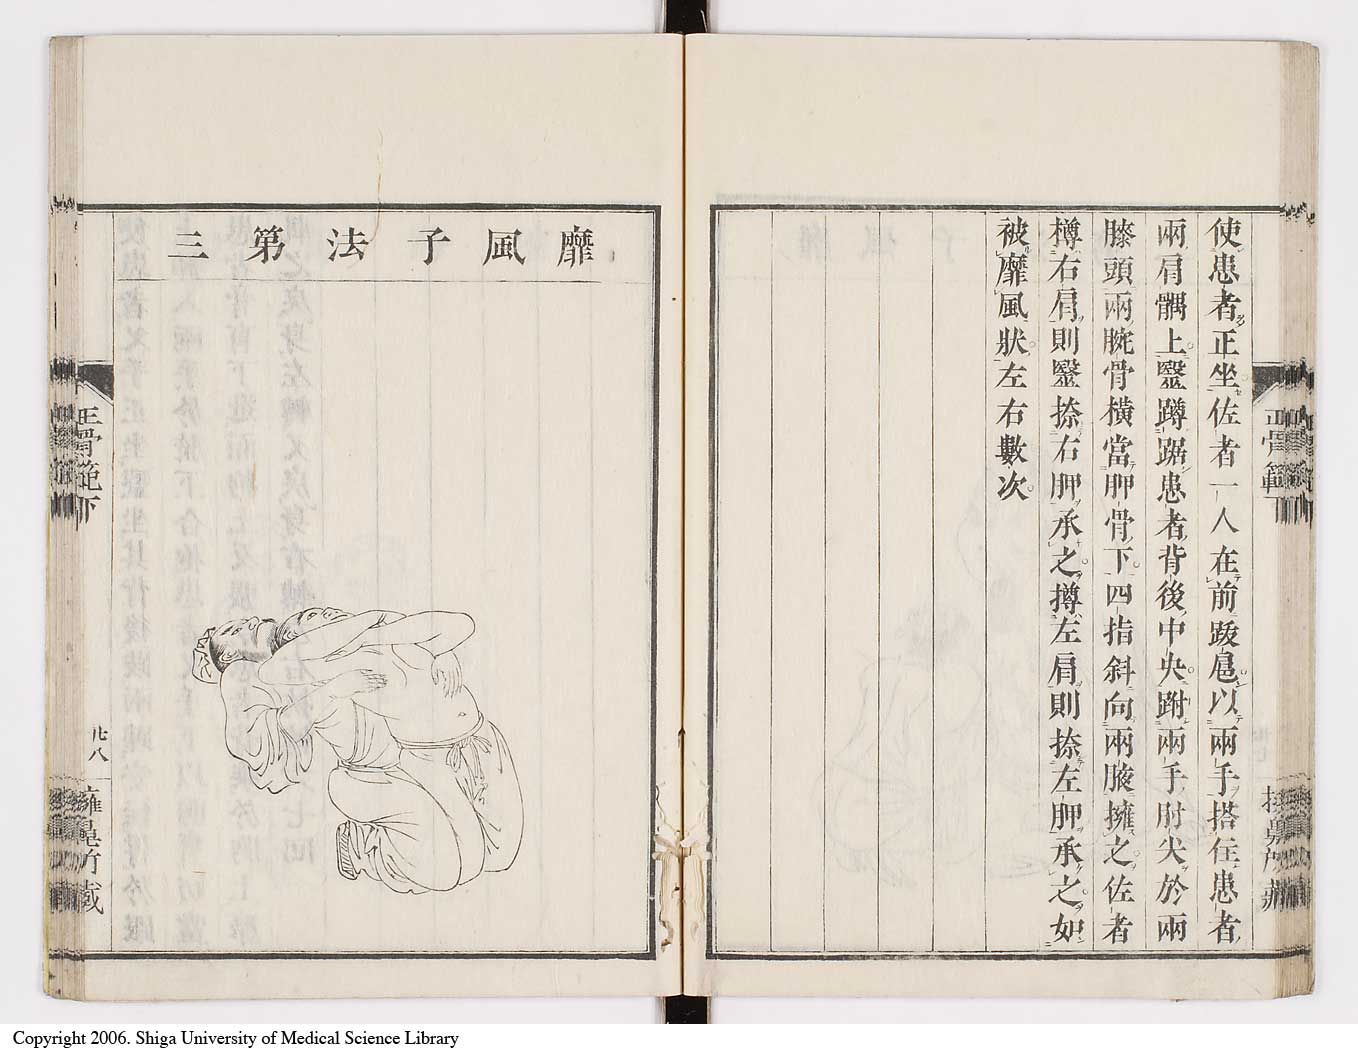 使患者正坐佐者一人在前跋扈以兩手搭住患者
兩肩髃上毉蹲踞患者背後中央跗兩手肘尖於兩
膝頭兩腕骨橫當胛骨下四指斜向兩腋擁之佐者
撙右肩則毉捺右胛承之撙左肩則捺左胛承之如
被靡風狀左右數次
正骨範下
靡風子法第三
正骨範下
廿八
Copyright 2006. Shiga University of Medical Science Library